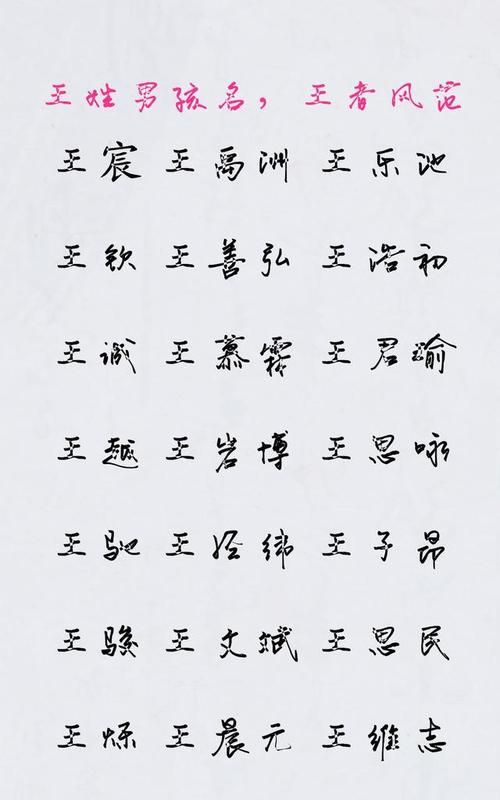 王姓男孩名，王者风范
王宸 王禹洲 王乐池
王钦 王善弘 王浩初
王诚 王慕霖 王君瑜
王越 王岩博 王思咏
王驰 王经纬 王子昂
王骏 王文斌 王思民
王烁 王晨元 王维志